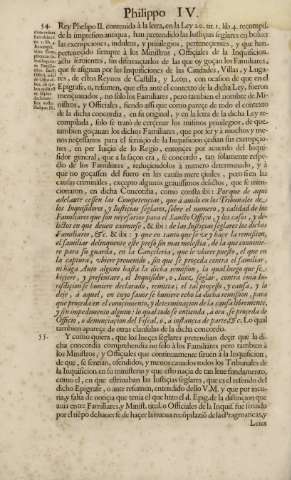 Philippo IV.
54. Rey Phelipo II. contenida à la letra, en la Ley 20. tit. 1. lib. 4. recopil.
de la impresion antigua, han pretendido las Iusticias seglares en
las exenpciones, indultos, y privilegios, pertenecientes, y que han
pertenecido siempre à los Ministros, Officiales de la Inquisicion,
actu servientes, sin diferenciarlos de las que oy goçan los Familiares,
que se asignan por las Inquisiciones de las Ciudades, Villas, y Lugares,
de estos Reynos de Castilla, y Leon, con ocasion de que en el
Epigrafe, o, resumen, que esta ante el contexto de la dicha Ley, fueron
mencionados, no solo los Familiares, pero tambien el nombre de Ministros,
y Officiales, siendo assi que como parece de todo el contexto
de la dicha concordia, en su original, y en la letra de la dicha Ley recompilada,
solo se trató de cercenar los mismos previlegios, de que tambien
goçavan los dichos Familiares, que por ser y à muchos y menos
necessarios para el servicio de la Inquisicion
en per Iuicio de lo Regio, entonces por acuerdo del Inquisidor
general, que à la saçon era, se concordó, tan solamente respecto
de los Familiares, reduciendolos à numero determinado, y à
que no goçassen del fuero en las causas mere civiles, pero si en las
causas criminales, excepto algunos gravissimos delictos, que se mencionaron,
en dicha Concordia, como consta ibi: Porque de aqui
adelante cessen las Competencias, que à avido en los Tribunales de
los Inquisidores, y Iusticias seglares, sobre el numero, y calidad de los
Familiares que son necessarios para el Sancto Officio, y los casos, y delictos
en que deven eximirse, & ibi: de las Iusticias seglares los dichos
Familiares, &c. & ibi: y que en tanto que se vè y haçe la remission,
el familiar delinquente este preso sin mas molestia, de la que conviniere
para su guarda, en la Carçeleria, que le oviere puesto, el que en
la captura, oviere prevenido, sin que se proceda contra el familiar,
ni haga Auto alguno hasta la dicha remission, la qual luego que se,
hiciere, y presentare, el Inquisidor, o, Iuez, seglar, contra cuya Iurisdiccion
se huviere declarado, remita, el tal processo, y causa, y la
deje, à aquel, en cuyo favor se huviere echo la dicha remission, para
que proceda en el conocimiento, y determinacion de la causa libremente,
y sin impedimento alguno: lo qual todo se entienda, ora se, proceda de
Officio, o denunciacion del Fiscal, o, à instancia de parte, & c. Lo qual
tambien apareçe de otras clausulas de la dicha concordia.
55. Y como quiera, que los Iueçes seglares pretendian deçir que la dicha
concordia comprehendia no solo à los Familiares pero tambien à
los Ministros, y Officiales que continuamente sirven à la Inquisicion,
de que, se sentian, ofendidos, y menos cavados todos los Tribunales de
la Inquisicion en su ministerio y que esto naçia de tan leue fundamento,
como el, en que estrivaban las Iusticias seglares, que es el referido del
dicho Epigrafe, o aute resumen, entendido desto V. M. y que por incuria,
y falta de noticia que tenia el que hiço el d. Epig. de la distincion que
avia entre Familiares, y Minist. titul. o Officiales de la Inquisi. fue sentado
por el tiēpo de haverse de haçer la nueva recopilació de las Pragmaticas, y
Leies